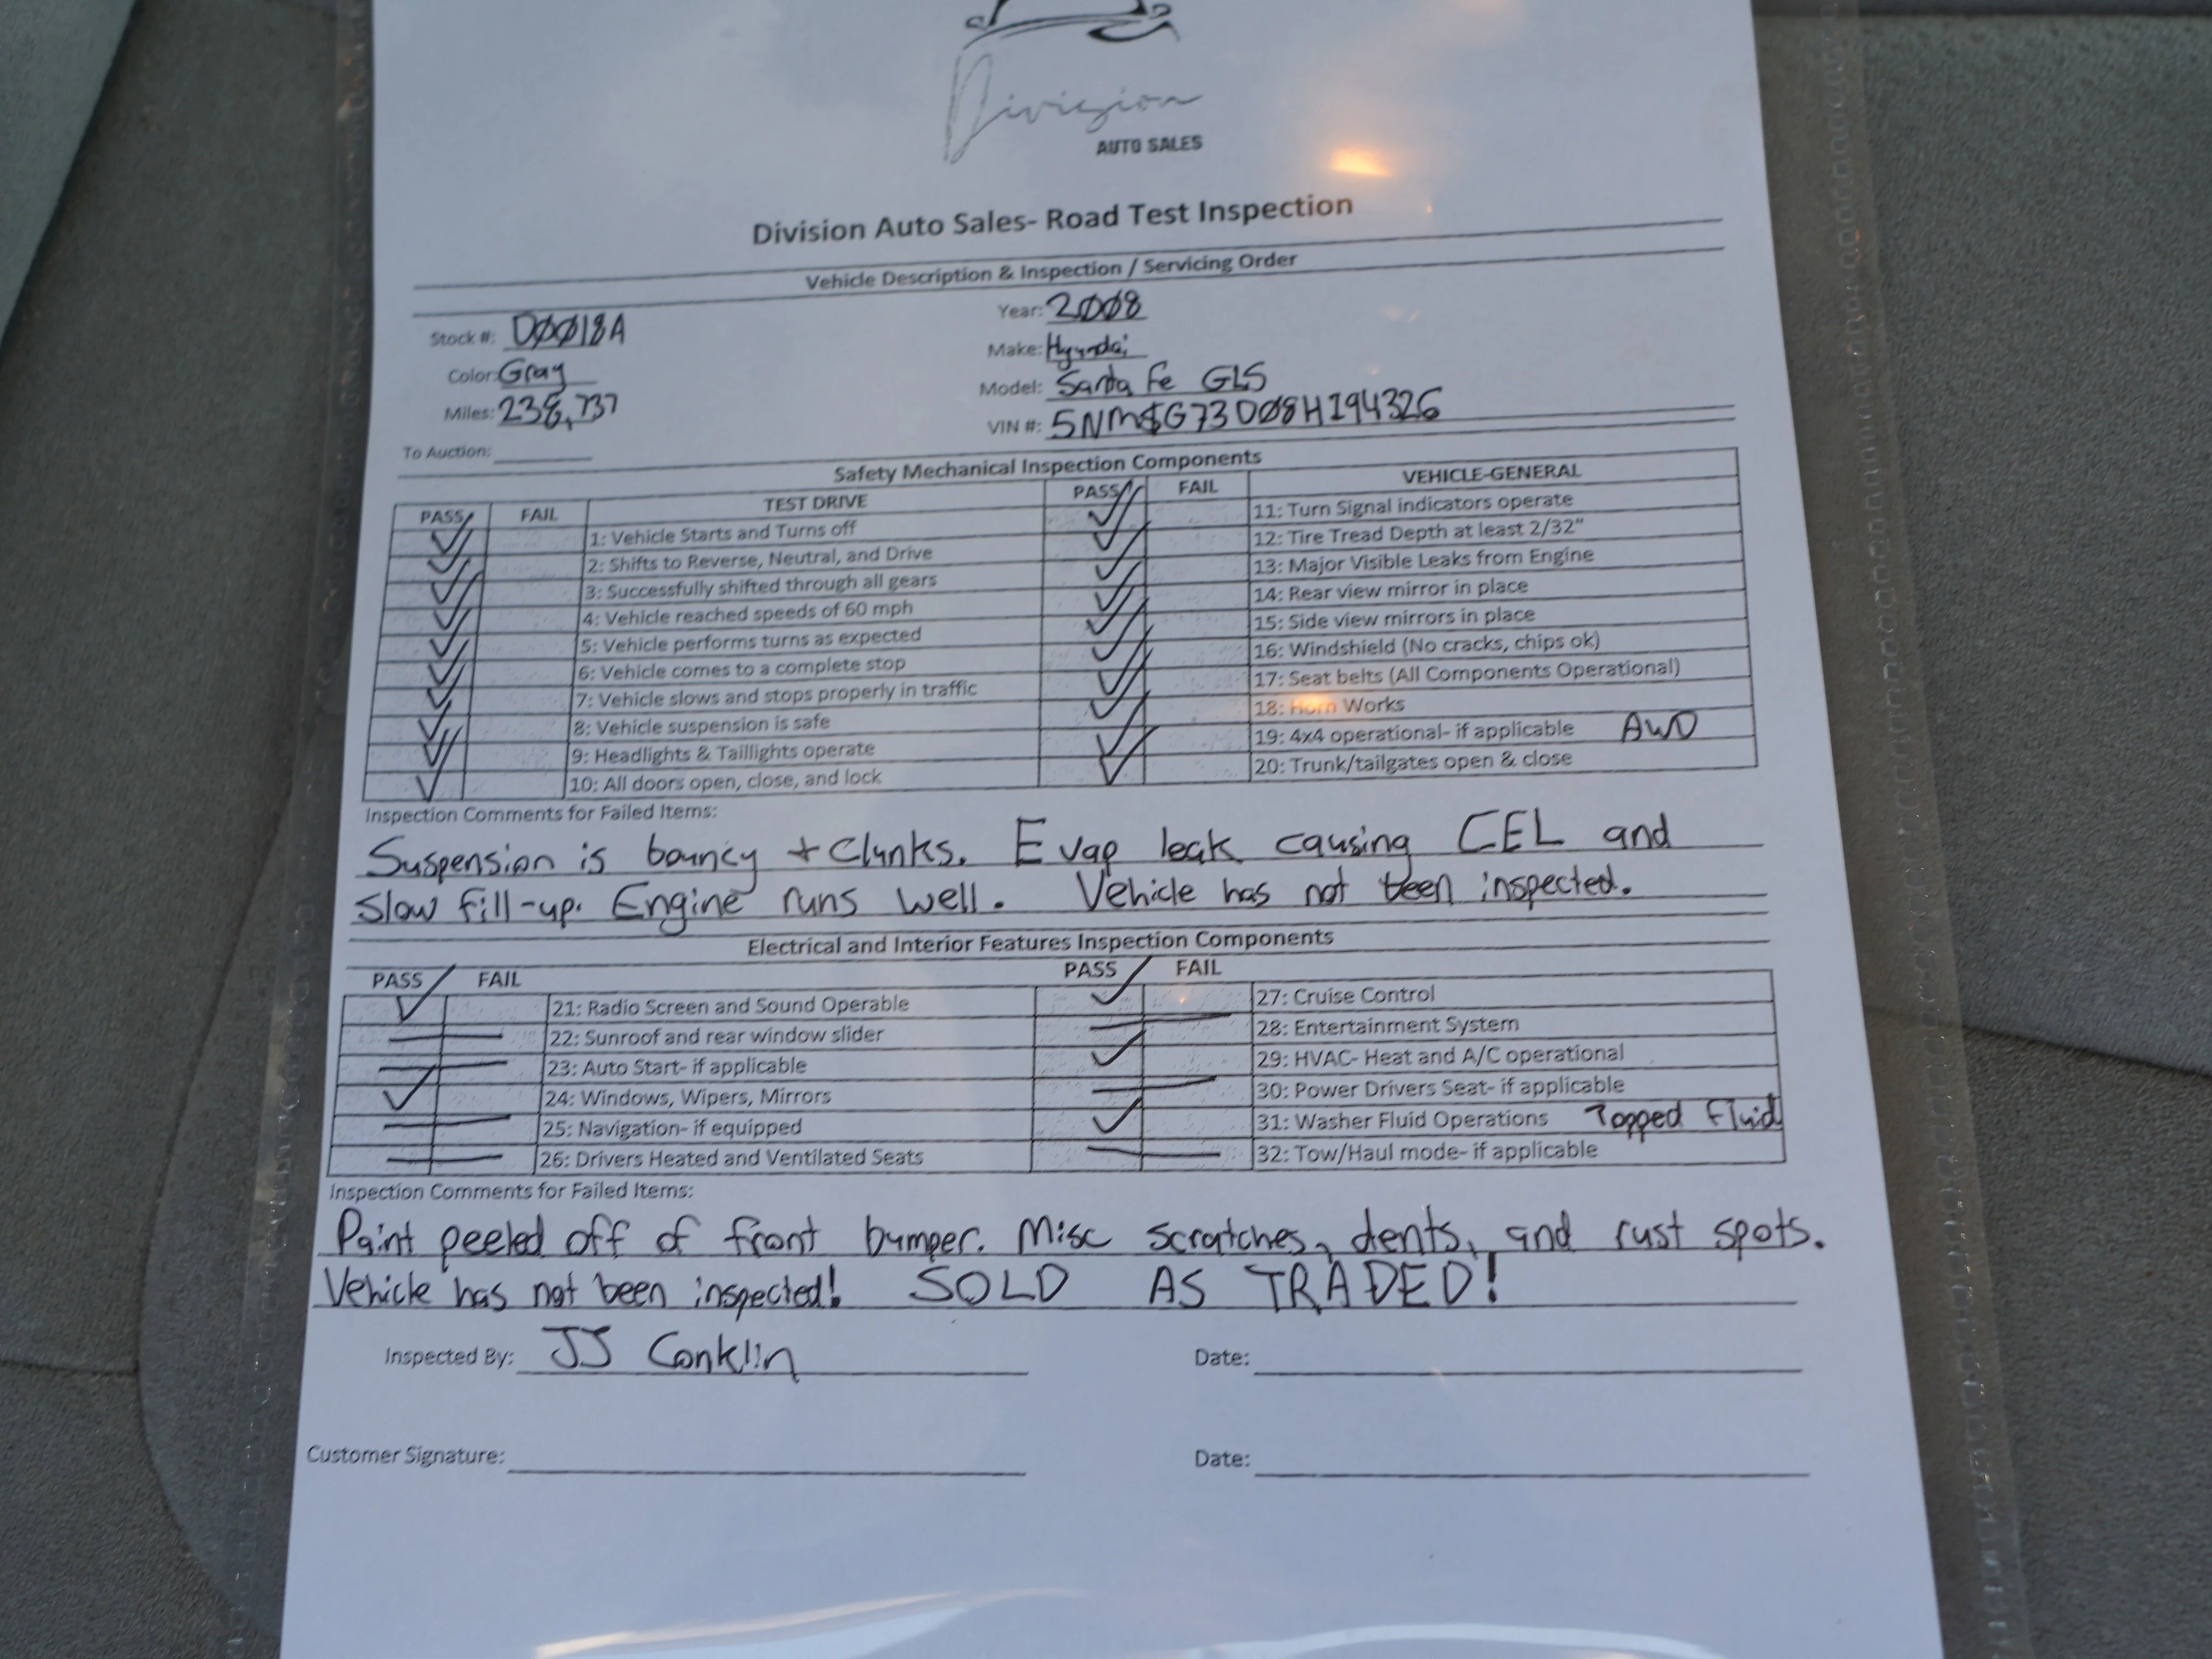 Division
AUTO SALES
Division Auto Sales- Road Test Inspection
Vehicle Description & Inspection / Servicing Order
Stock #: D0018A
Year: 2008
Color: Gray
Make: Hyundai
Miles: 238,737
Model: Santa Fe GLS
VIN #: 5NMSG73D08H194326
To Auction:
Safety Mechanical Inspection Components
PASS FAIL TEST DRIVE PASS FAIL VEHICLE-GENERAL
1: Vehicle Starts and Turns off
11: Turn Signal indicators operate
2: Shifts to Reverse, Neutral, and Drive
12: Tire Tread Depth at least 2/32"
3: Successfully shifted through all gears
13: Major Visible Leaks from Engine
4: Vehicle reached speeds of 60 mph
14: Rear view mirror in place
5: Vehicle performs turns as expected
15: Side view mirrors in place
6: Vehicle comes to a complete stop
16: Windshield (No cracks, chips ok)
7: Vehicle slows and stops properly in traffic
17: Seat belts (All Components Operational)
8: Vehicle suspension is safe
18: Horn Works
9: Headlights & Taillights operate
19: 4x4 operational- if applicable AWD
10: All doors open, close, and lock
20: Trunk/tailgates open & close
Inspection Comments for Failed Items:
Suspension is bouncy + Clunks. Evap leak causing CEL and
slow fill-up. Engine runs well. Vehicle has not been inspected.
Electrical and Interior Features Inspection Components
PASS FAIL PASS FAIL
21: Radio Screen and Sound Operable
27: Cruise Control
22: Sunroof and rear window slider
28: Entertainment System
23: Auto Start- if applicable
29: HVAC- Heat and A/C operational
24: Windows, Wipers, Mirrors
30: Power Drivers Seat- if applicable
25: Navigation- if equipped
31: Washer Fluid Operations Topped Fluid
26: Drivers Heated and Ventilated Seats
32: Tow/Haul mode- if applicable
Inspection Comments for Failed Items:
Paint peeled off of front bumper. Misc scratches, dents, and rust spots.
Vehicle has not been inspected! SOLD AS TRADED!
Inspected By: JJ Conklin
Date:
Customer Signature:
Date: